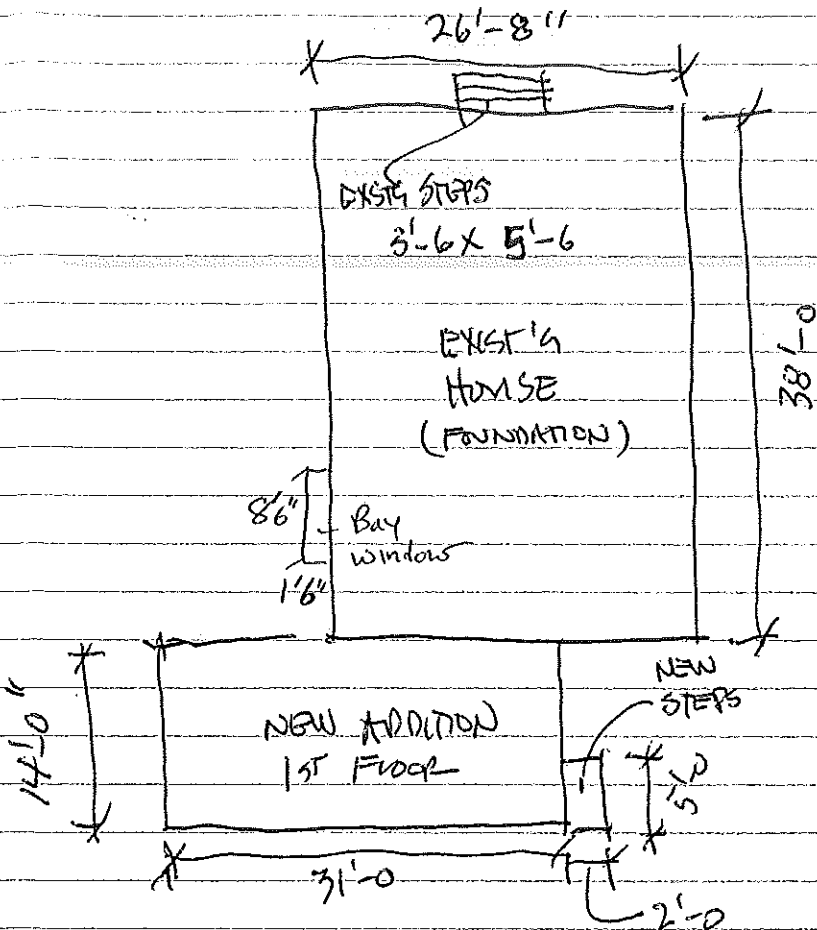 26'-8"
EXSTG STEPS
3'-6 X 5'-6
EXIST'G
HOUSE
(FOUNDATION)
38'-0
8'6"
Bay
window
1'6"
NEW
STEPS
NEW ADDITION
1ST FLOOR
14'-0"
5'-0
31'-0
2'-0